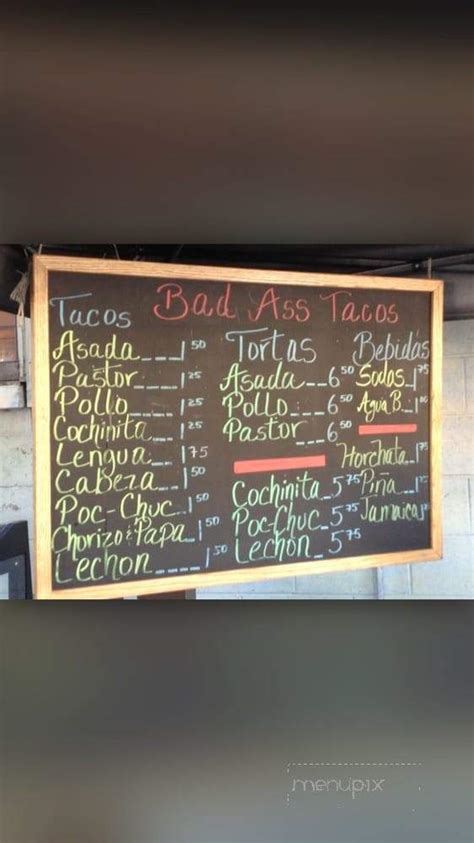 Bad Ass Tacos
Tacos
Asada 1 50
Pastor 1 25
Pollo 1 25
Cochinita 1 25
Lengua 1 75
Cabeza 1 50
Poc-Chuc 1
Chorizo & Papa 1 50
Lechon 1 50
Tortas
Asada 6 50
Pollo 6 50
Pastor 6 50
Cochinita 5 75
Poc-Chuc 5 75
Lechon 5 75
Bebidas
Sodas 1 75
Agua B. 1
Horchata 1 75
Piña 1
Jamaica
menupix